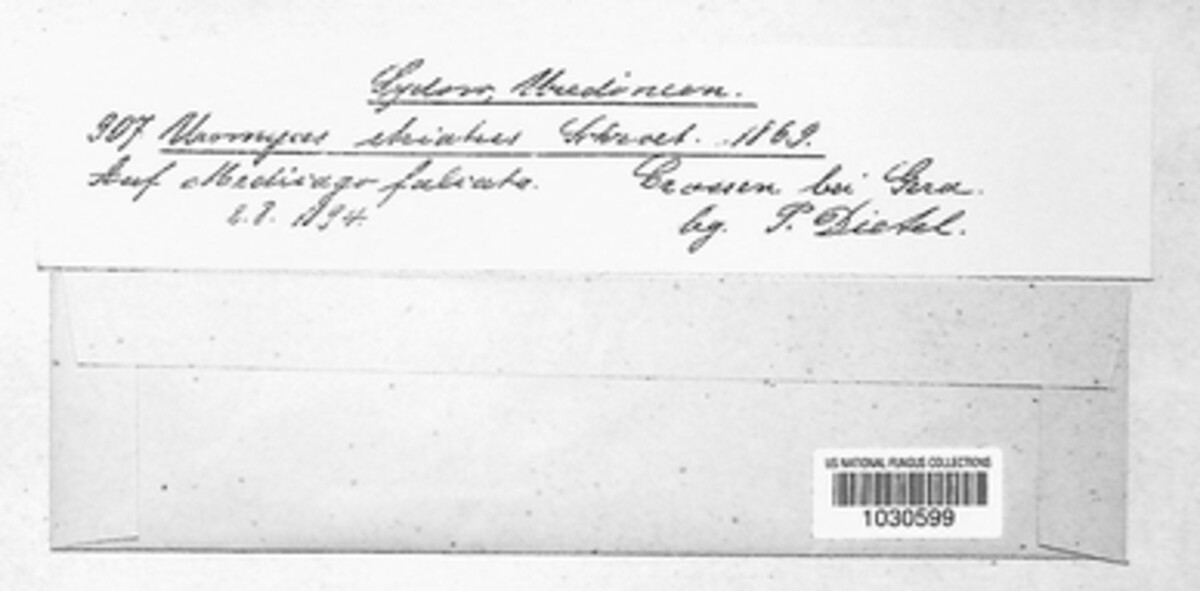 Sydow, Uredineen.
907 Uromyces striatus Schroet. 1869.
Auf Medicago falcata. Crossen bei Gera.
2.8. 1894. lg. P. Dietel.
US NATIONAL FUNGUS COLLECTIONS
1030599